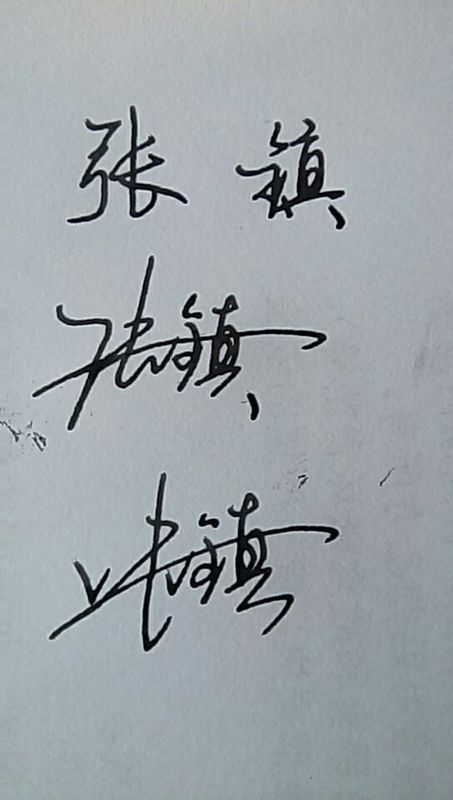 张镇
张镇
张镇